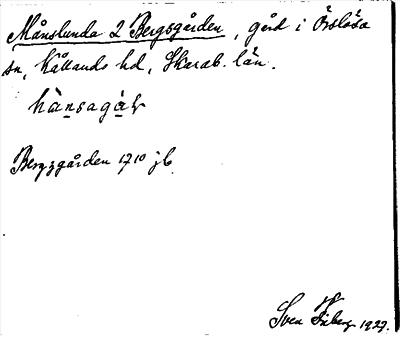 Månslunda 2 Bergsgården, gård i Örslösa
sn, Kållands hd, Skarab. län.
hànsagàḷ
Bergzgården 1710 jb.
Sven 1927.